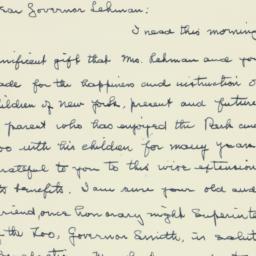 Dear Governor Lehman:
I read this morning
nificent gift that Mrs. Lehman and you
ade for the happiness and instruction o
hildren of New York, present and future
parent who has enjoyed the Park an
oo with his children for many years
rateful to you to this wise extension
ts benefits. I am sure your old and
riend, once honorary night Superinte
the Zoo, Governor Smith, is salut